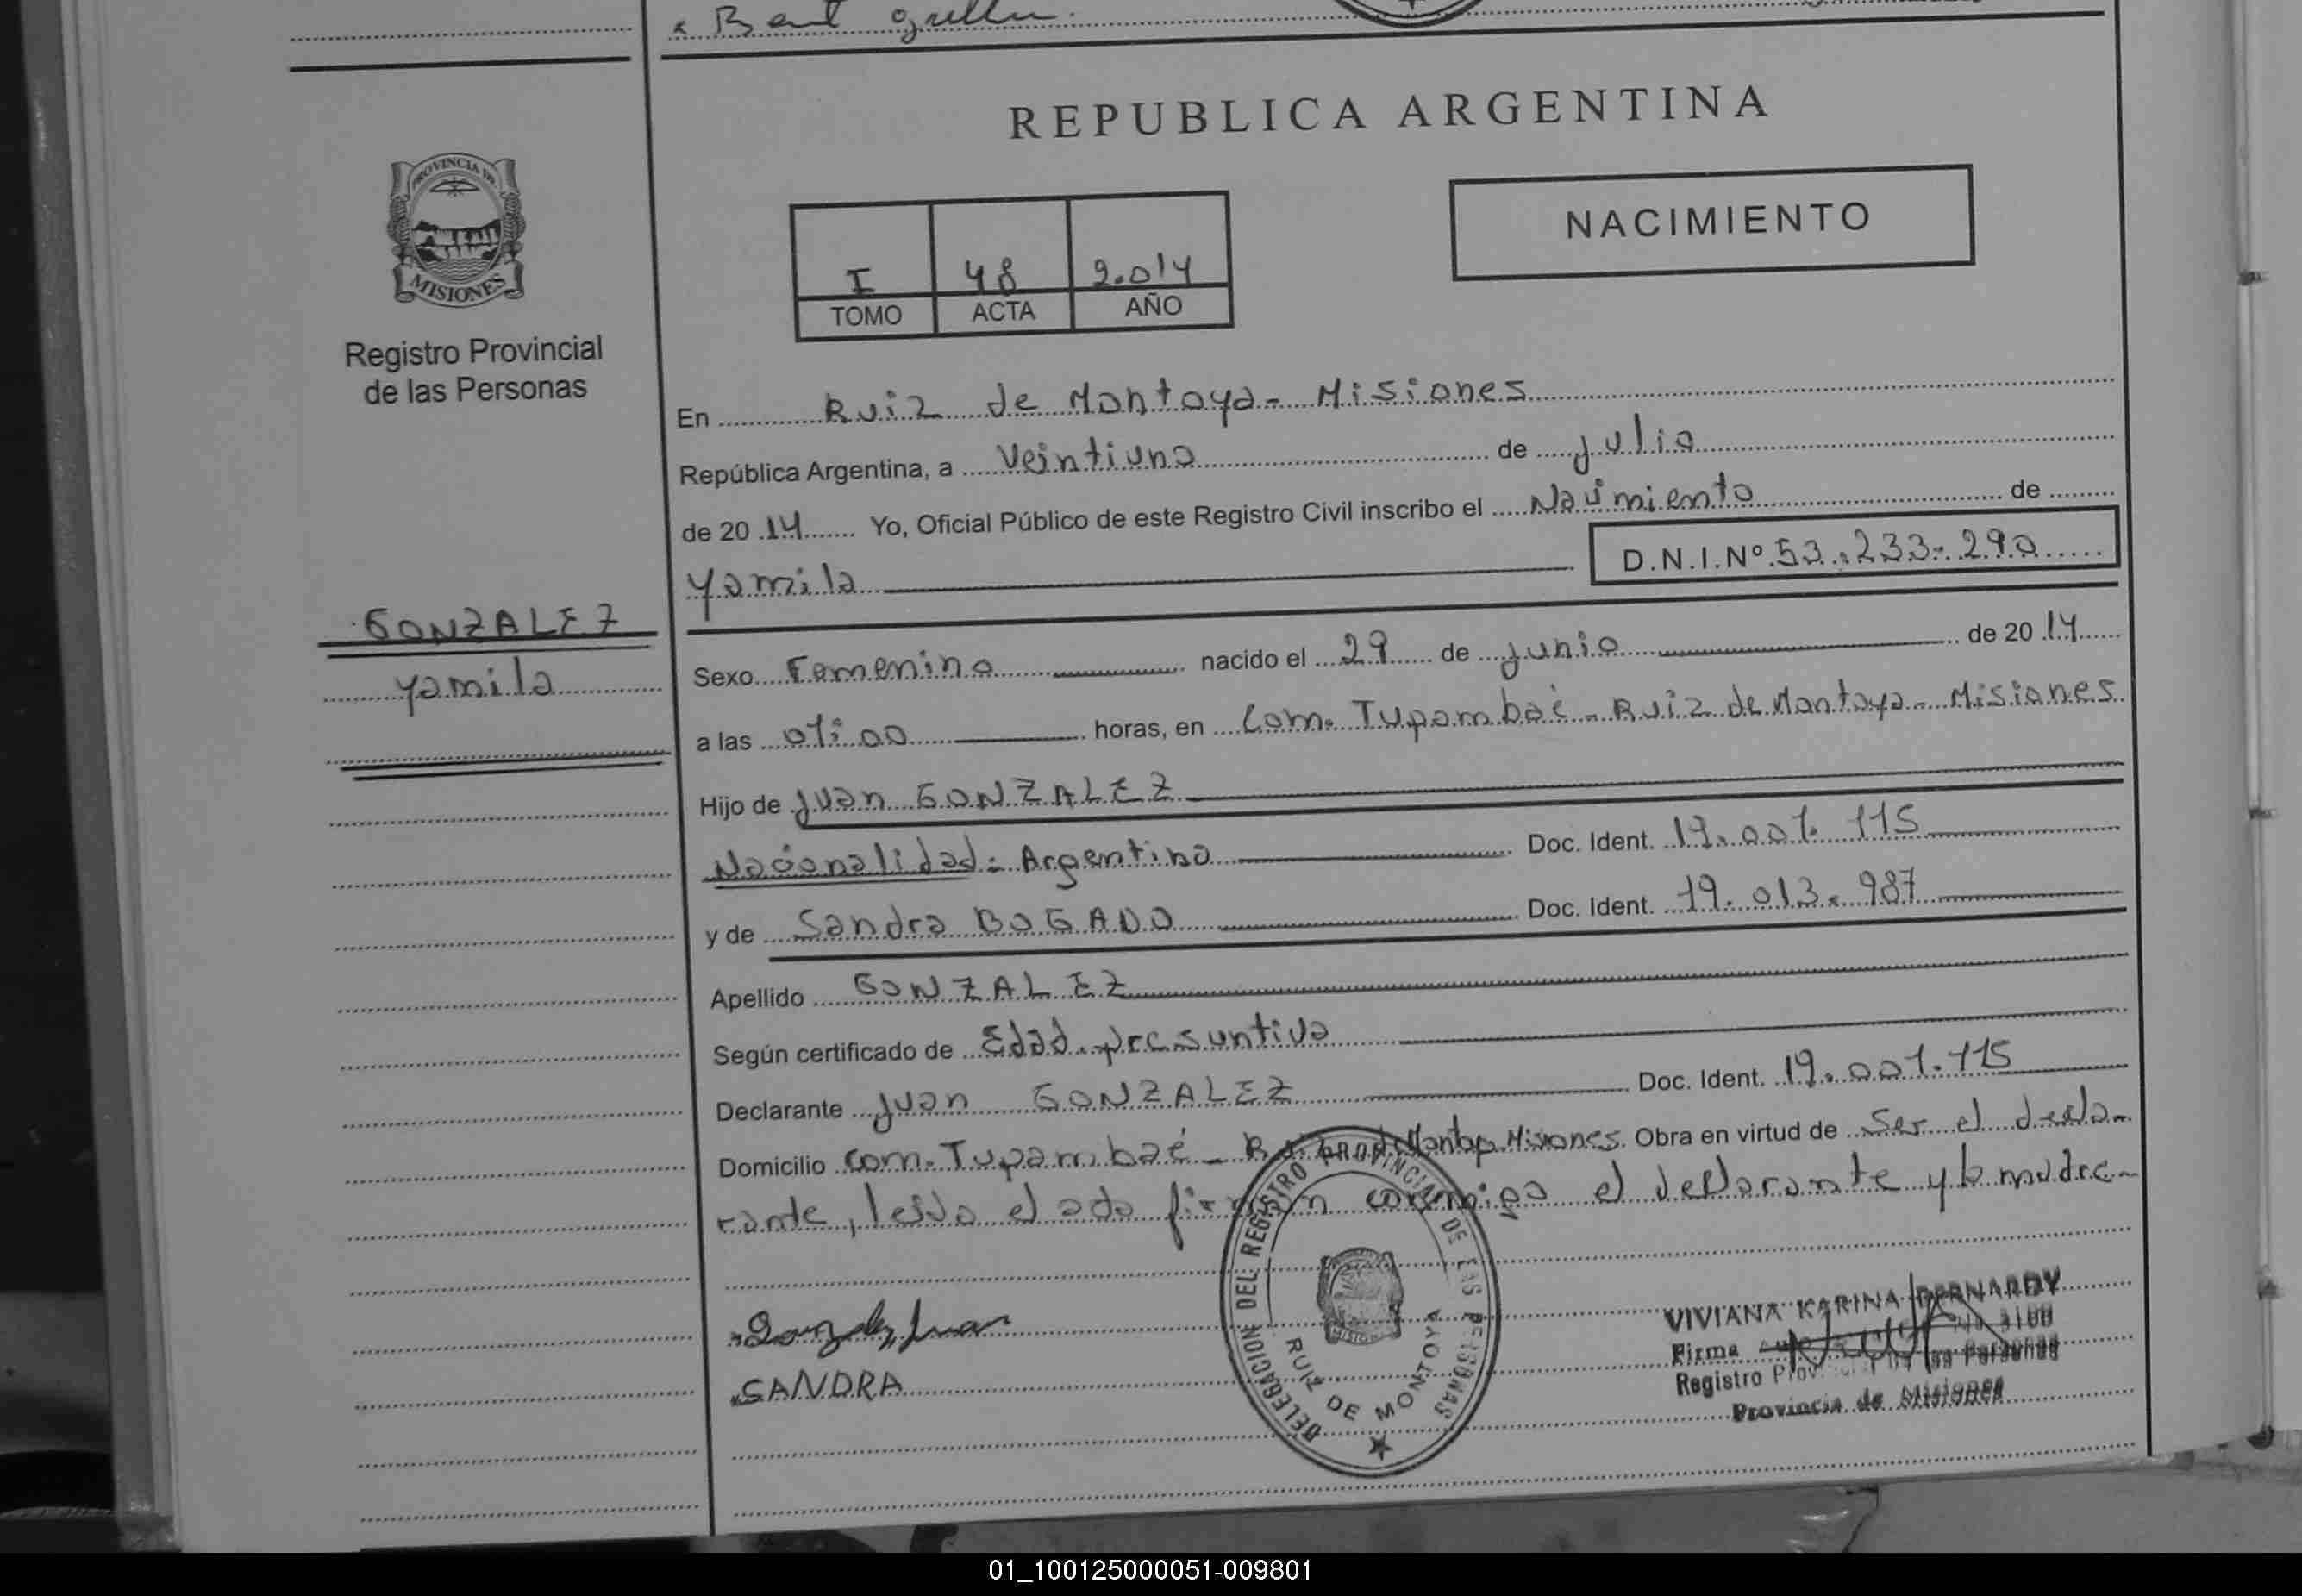 REPUBLICA ARGENTINA
PROVINCIA DE
MISIONES
Registro Provincial
de las Personas
I 48 2.014
TOMO ACTA AÑO
NACIMIENTO
En Ruiz de Montoya- Misiones
República Argentina, a Veintiuno de julio
de 20 14 Yo, Oficial Público de este Registro Civil inscribo el Nacimiento de
Yamila D.N.I.Nº 53.233.290
GONZALEZ
Yamila
Sexo Femenino nacido el 29 de junio de 20 14
a las 07:00 horas, en Com. Tupambaé - Ruiz de Montoya - Misiones.
Hijo de Juan GONZALEZ
Nacionalidad: Argentino Doc. Ident. 19.007.115
y de Sandra BOGADO Doc. Ident. 19.013.987
Apellido GONZALEZ
Según certificado de Edad presuntiva
Declarante Juan GONZALEZ Doc. Ident. 19.007.115
Domicilio Com. Tupambaé - Montoya Misiones. Obra en virtud de Ser el decla-
rante, leida el acta firman conmigo el declarante y la madre-
Gonzalez, Juan
SANDRA
DELEGACION DEL REGISTRO PROVINCIAL DE LAS PERSONAS
RUIZ DE MONTOYA
VIVIANA KARINA BERNARDY
Firma
Registro Prov. de las Personas
Provincia de Misiones
01_100125000051-009801